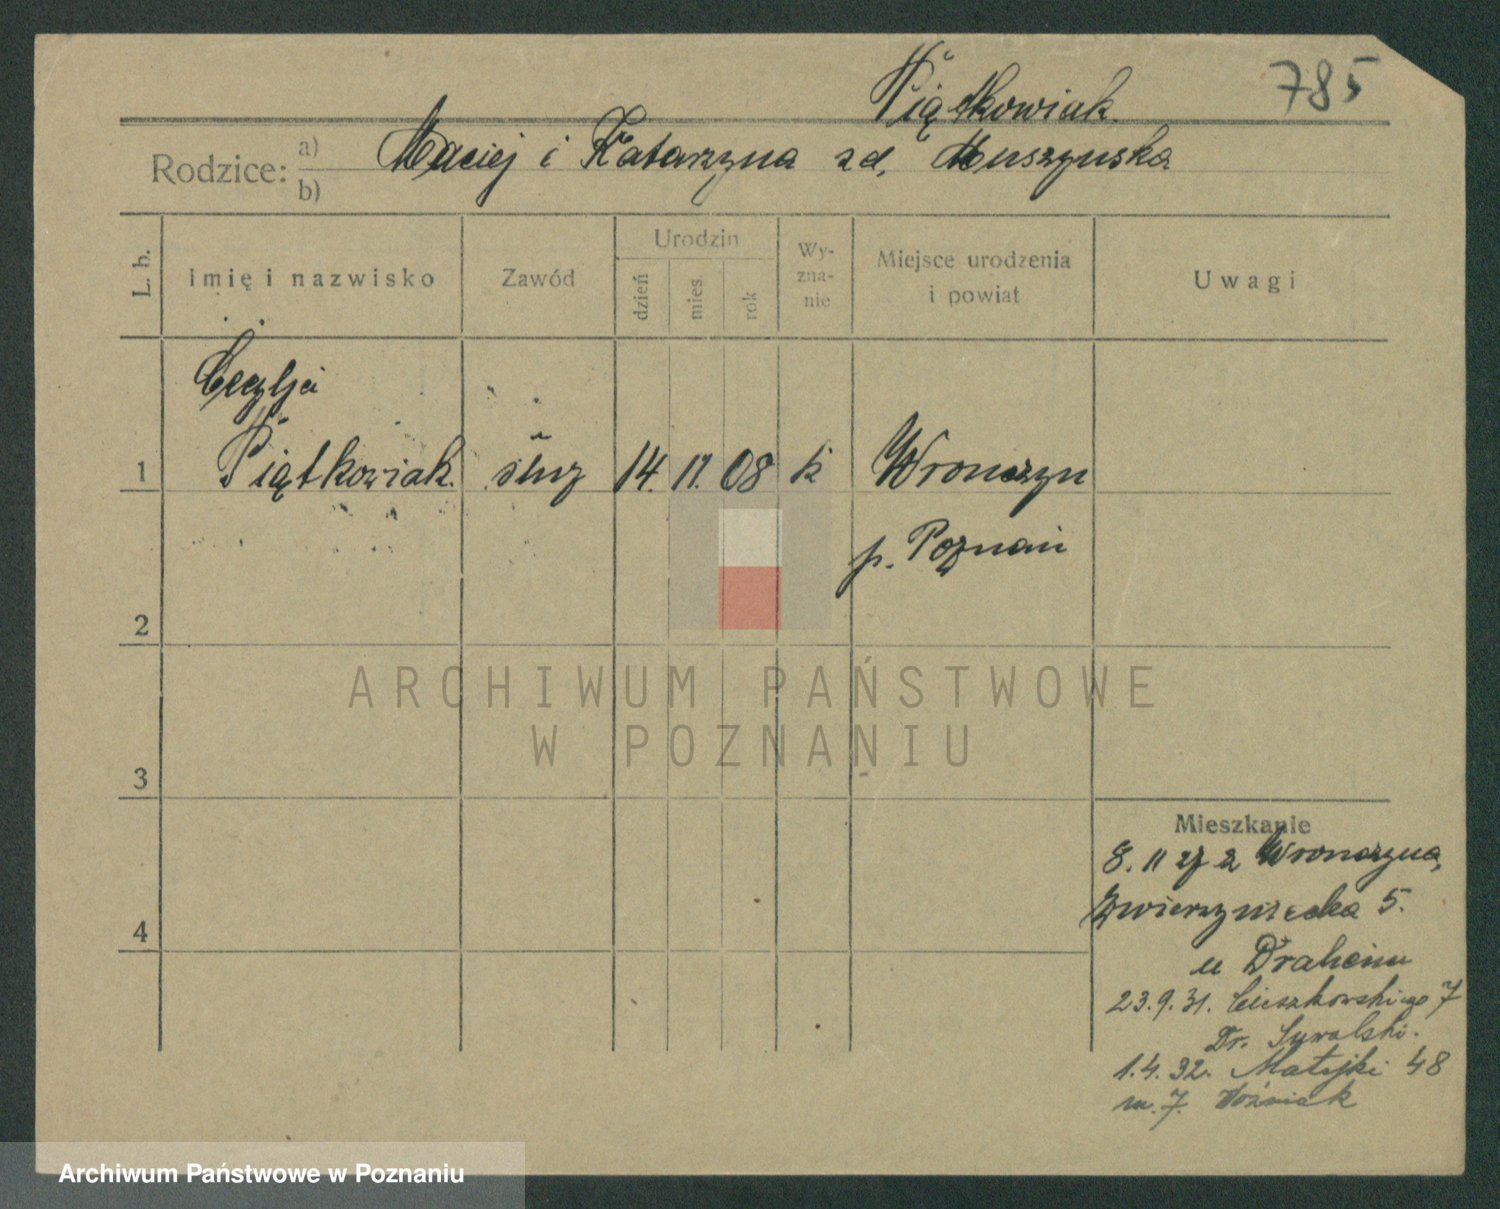 Piątkowiak.
785
Rodzice: a) Maciej i Katarzyna zd. Muszyńska
b)
L. b.
Imię i nazwisko
Zawód
Urodzin
dzień
mies.
rok
Wy-
zna-
nie
Miejsce urodzenia
i powiat
Uwagi
Cecylja
1 Piątkowiak. służ 14. 11. 08 k Wronczyn
p. Poznań
2
ARCHIWUM PAŃSTWOWE
W POZNANIU
3
Mieszkanie
8. 11 z Wronczyna,
4 Zwierzyniecka 5.
u
23.9.31. Cieszkowskiego 7
Dr. Suwalski.
1.4.32. Matejki 48
m. 7. Woźniak
Archiwum Państwowe w Poznaniu